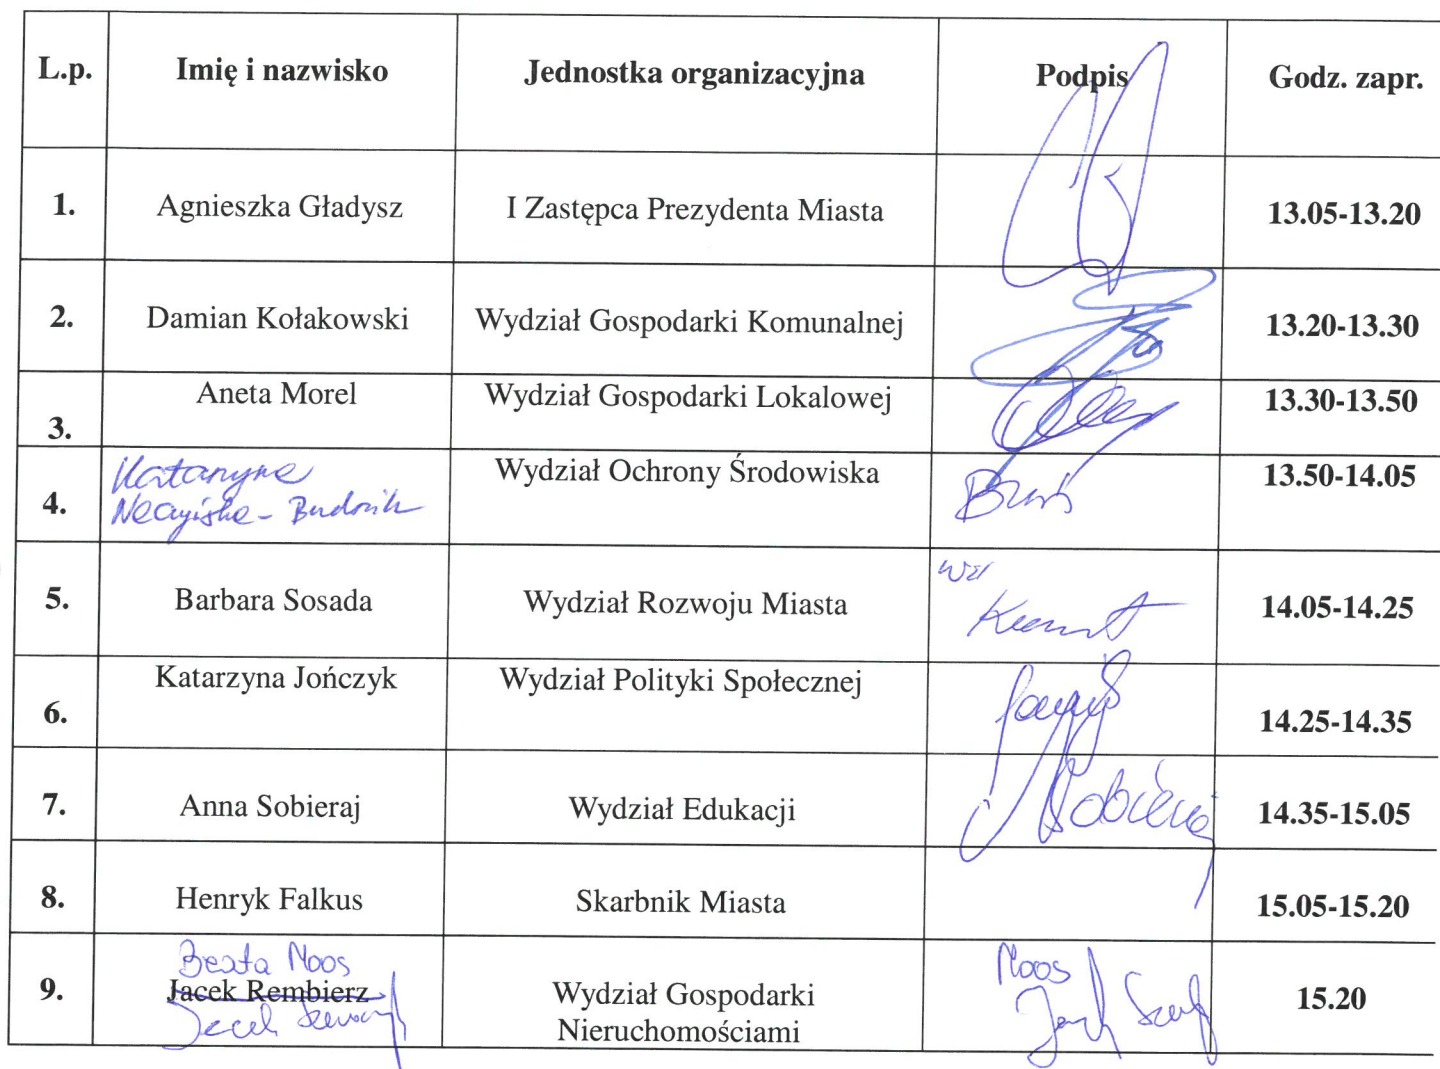 L.p. Imię i nazwisko Jednostka organizacyjna Podpis Godz. zapr.
1. Agnieszka Gładysz I Zastępca Prezydenta Miasta 13.05-13.20
2. Damian Kołakowski Wydział Gospodarki Komunalnej 13.20-13.30
3. Aneta Morel Wydział Gospodarki Lokalowej 13.30-13.50
Wydział Ochrony Środowiska 13.50-14.05
Katarzyna
4. Budnik
5. Barbara Sosada Wydział Rozwoju Miasta 14.05-14.25
Katarzyna Jończyk Wydział Polityki Społecznej
6. 14.25-14.35
7. Anna Sobieraj Wydział Edukacji Sobieraj 14.35-15.05
8. Henryk Falkus Skarbnik Miasta 15.05-15.20
Beata Noos Noos
9. Jacek Rembierz Wydział Gospodarki 15.20
Jacek Nieruchomościami